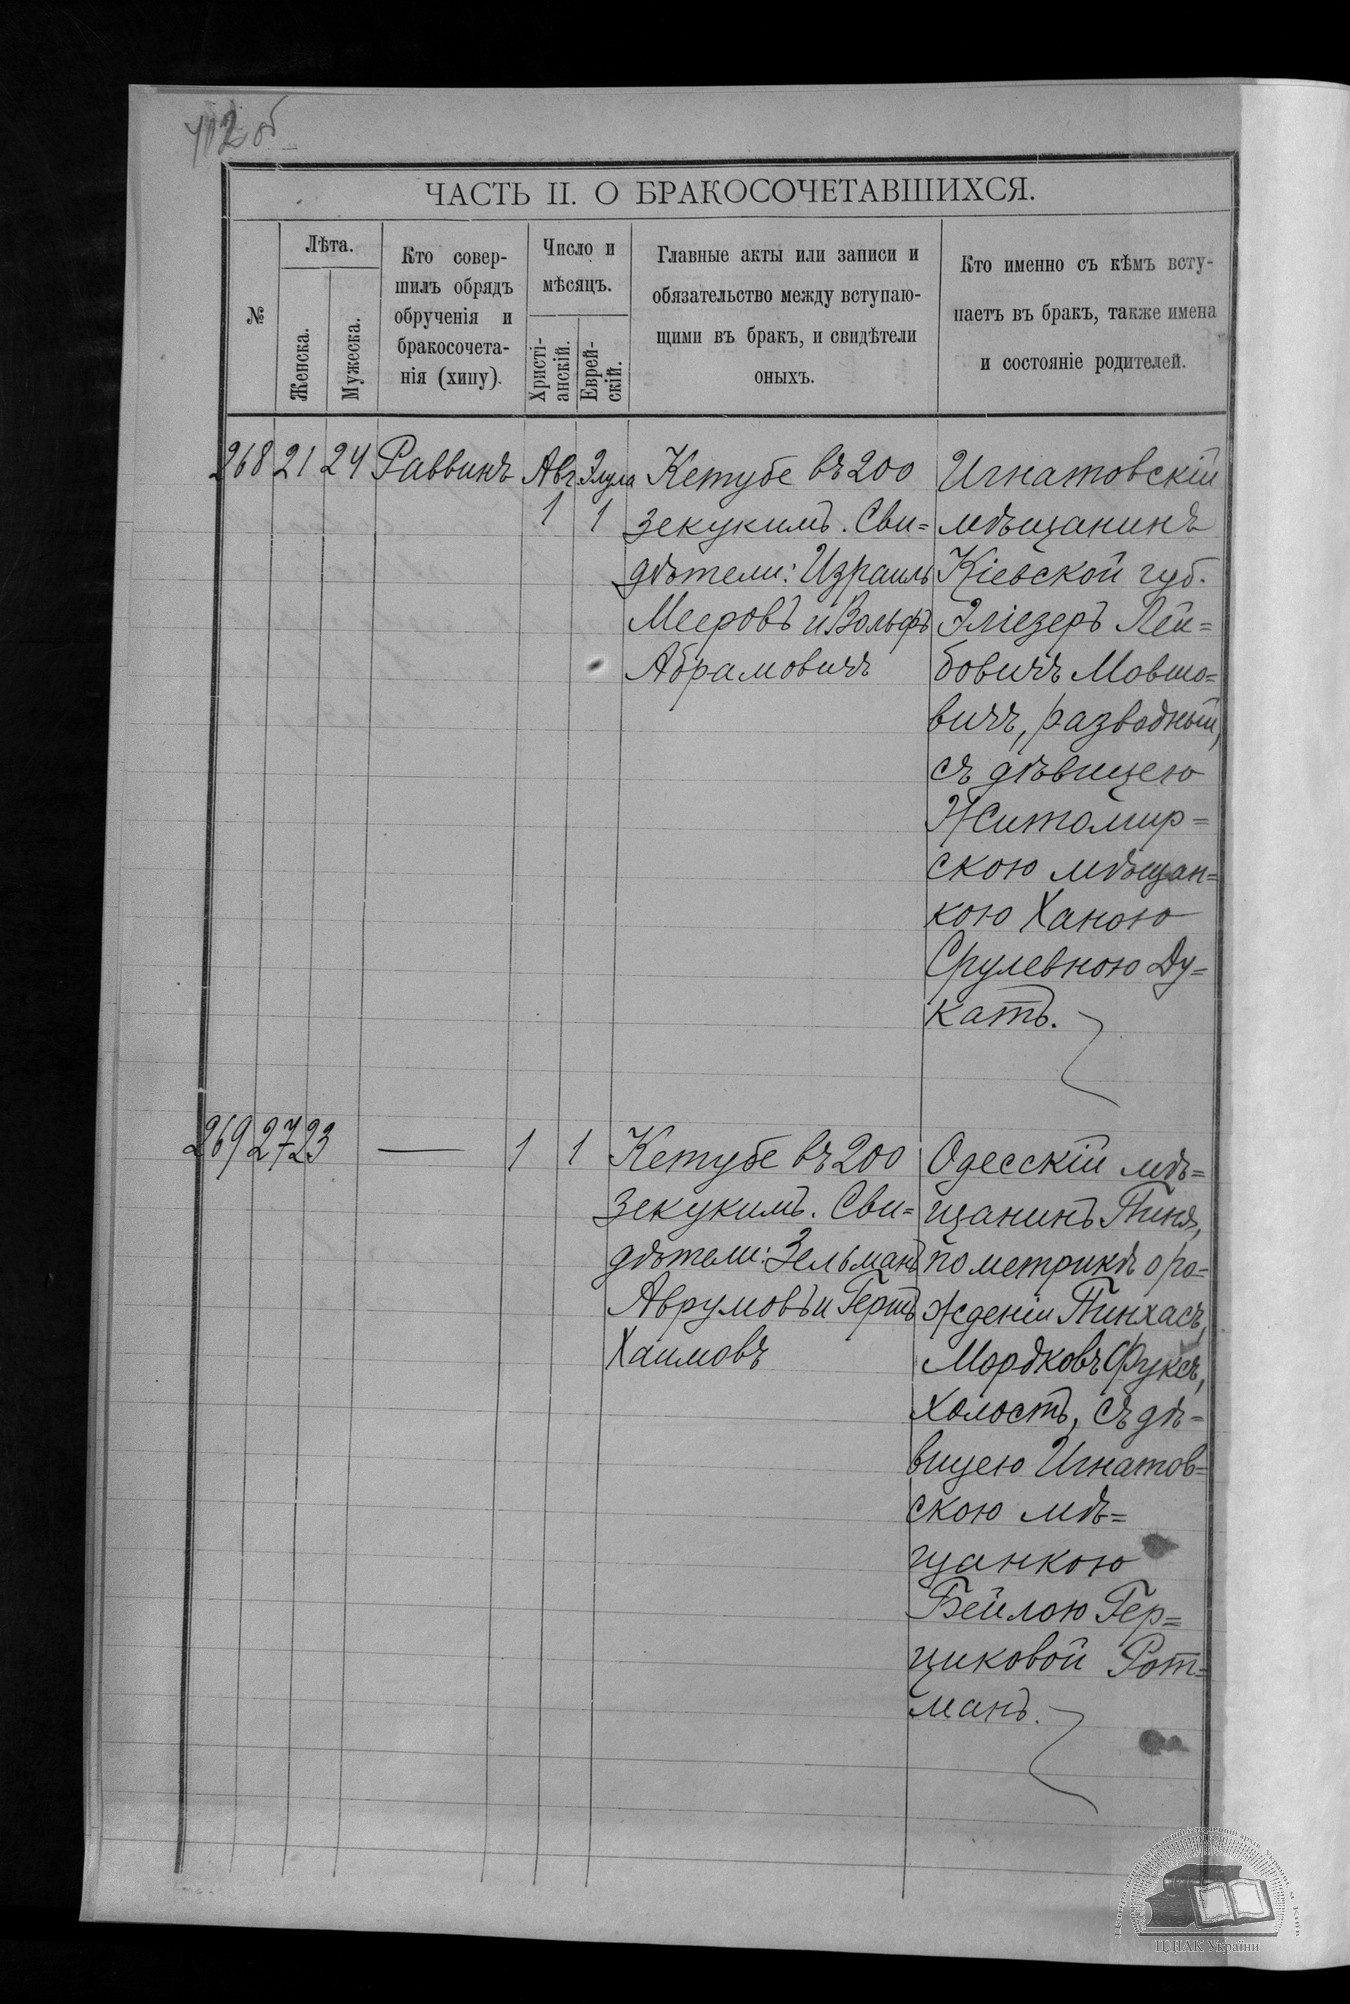 ЧАСТЬ II. О БРАКОСОЧЕТАВШИХСЯ.
№
Лѣта.
Женска.
Мужеска.
Кто совер-
шилъ обрядъ
обрученія и
бракосочета-
нія (хипу).
Число и
мѣсяцъ.
Христі-
анскій.
Еврей-
скій.
Главные акты или записи и
обязательство между вступаю-
щими въ бракъ, и свидѣтели
оныхъ.
Кто именно съ кѣмъ всту-
паетъ въ бракъ, также имена
и состояніе родителей.
268 21 24 Раввинъ Авг. Элула
1 1
Кетубе въ 200
зекукимъ. Сви=
дѣтели: Израиль
Мееровъ и Вольфъ
Абрамовичъ
Игнатовскій
мѣщанинъ
Кіевской губ.
Эліезеръ Лей=
бовичъ Мовшо=
вичъ, разводный,
съ дѣвицею
Житомир=
скою мѣщан=
кою Ханою
Срулевною Ду=
катъ.
269 27 23 — 1 1
Кетубе въ 200
зекукимъ. Сви=
дѣтели: Зельманъ
Аврумовъ и Гершъ
Хаимовъ
Одесскій мѣ=
щанинъ Пиня,
по метрикѣ о ро=
жденіи Пинхасъ,
Мордковъ Фуксъ,
холостъ, съ дѣ=
вицею Игнатов=
скою мѣ=
щанкою
Бейлою Гер=
циковой Рот=
манъ.
ЦДІАК України